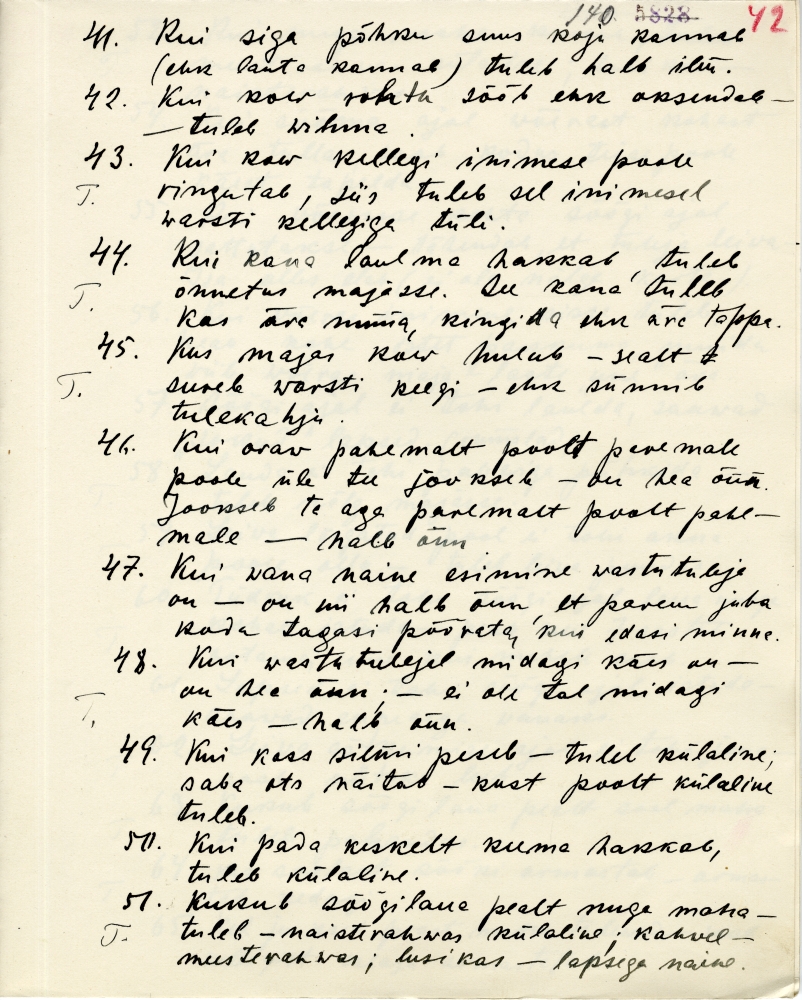 140 5828 42
41. Kui siga põhku suus koju kannab
(ehk lauta kannab) tuleb halb ilm.
42. Kui koer rohtu sööb ehk oksendab –
– tuleb wihma.
43. Kui koer kellegi inimese poole
T. ringutab, siis tuleb sel inimesel
warsti kellegiga tüli.
44. Kui kana laulma hakkab, tuleb
T. õnnetus majasse. See kana tuleb
kas ära müüa, kingida ehk ära tappa.
45. Kus majas koer hulub – sealt
T. sureb warsti keegi – ehk sünnib
tulekahju.
46. Kui oraw pahemalt poolt paremale
poole üle tee jookseb – on hea õnn.
Jookseb ta aga paremalt poolt pahe-
male – halb õnn
47. Kui wana naine esimine wastutulija
on – on nii halb õnn, et parem juba
kodu tagasi pöörata, kui edasi minna.
48. Kui wastutulejal midagi käes on –
on hea õnn; – ei ole tal midagi
T. käes – halb õnn.
49. Kui kass silmi peseb – tuleb külaline;
saba ots näitab – kust poolt külaline
tuleb.
50. Kui pada keskelt keema hakkab,
tuleb külaline.
51. Kukub söögilaua pealt nuga maha –
T. tuleb – naisterahwas külaline; kahwel –
meesterahwas; lusikas – lapsega naine.